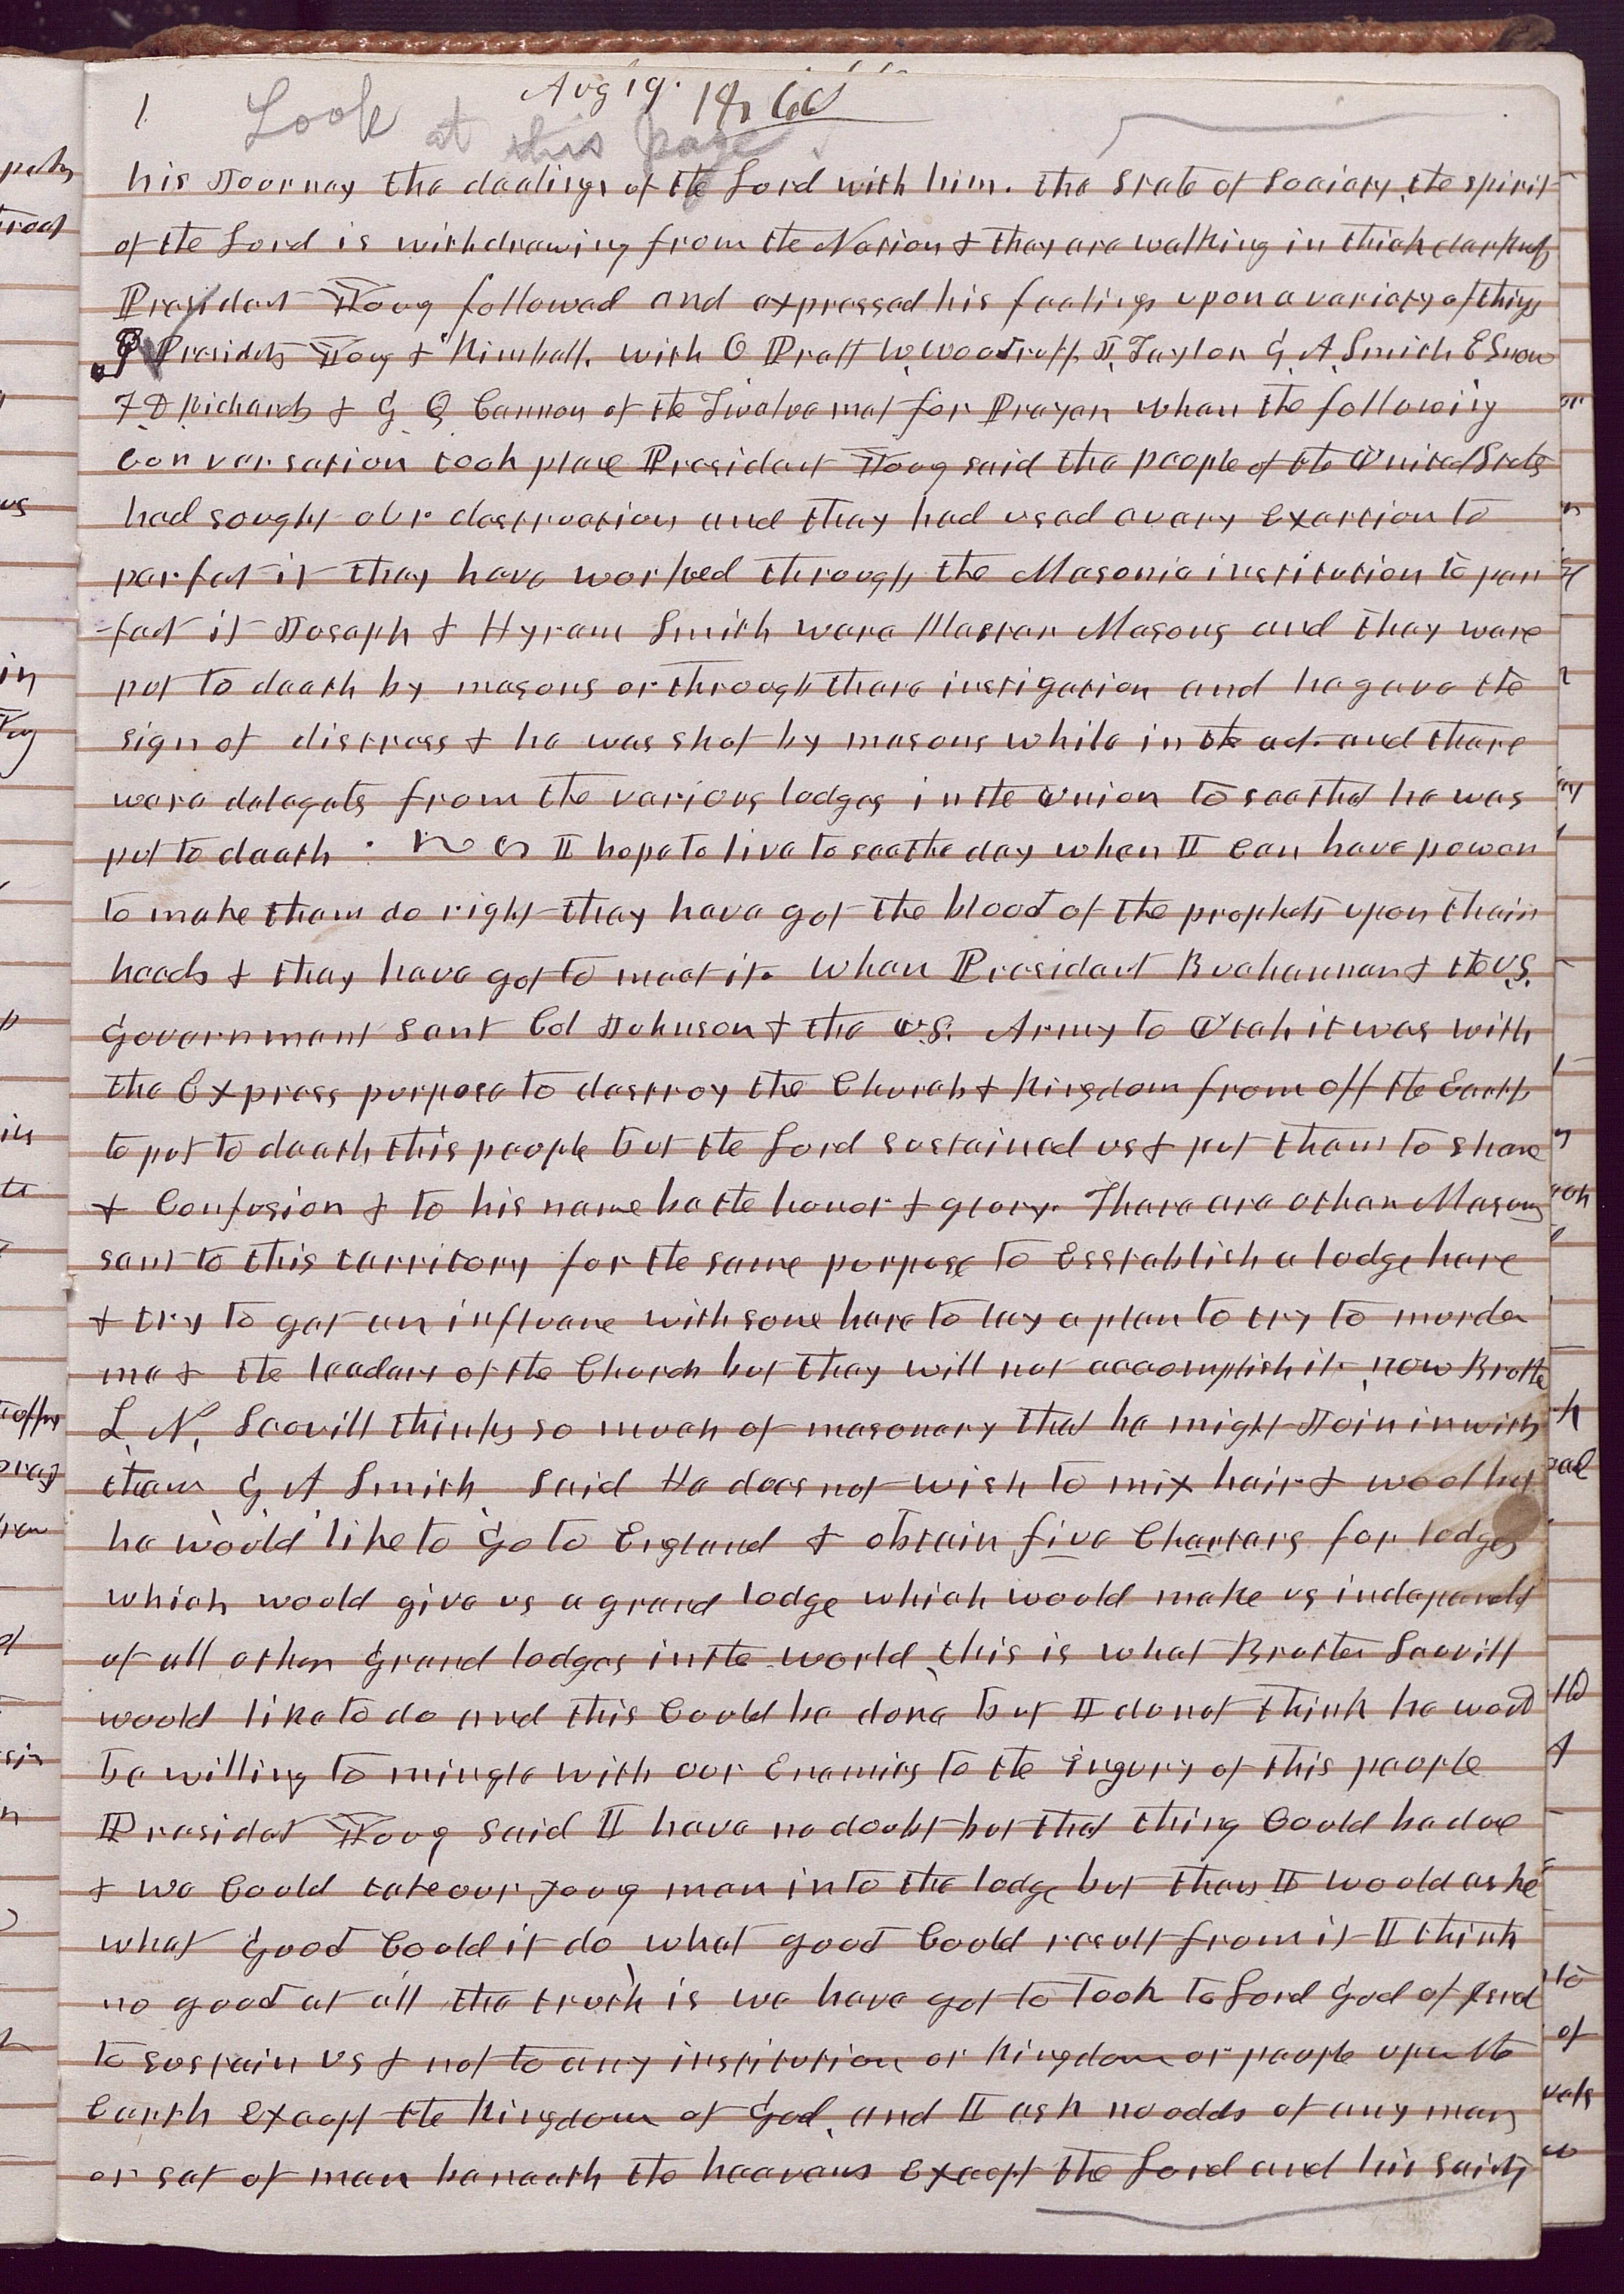 1 Aug 19. 1860
Look at this page.
his Journey the dealings of the Lord with him. the State of Society, the spirit
of the Lord is withdrawing from the Nation & they are walking in thick darkness
President Young followed and expressed his feelings upon a variety of things
Presidets Young & Kimball, with O Pratt W. Woodruff J. Taylor G. A. Smith E Snow
F D Richards & G Q Cannon of the Twelve met for Prayer when the following
Conversation took place President Young said the people of the United States
had sought our destruction and they had used every Exertion to
perfect it they have worked through the Masonic institution to per
-fect it Joseph & Hyram Smith were Master Masons and they ware
put to death by masons or through there instigation and he gave the
sign of distress & he was shot by masons while in the act. and there
were delegats from the various lodges in the Union to see that he was
put to death. I hope to live to see the day when I can have power
to make them do right they have got the blood of the prophets upon their
heads & they have got to meet it. When President Buchannan & the U.S.
Government sent Col Johnson & the U.S. Army to Utah it was with
the Express purpose to destroy the Church & Kingdom from off the Earth
to put to death this people but the Lord sustained us & put them to shame
& Confusion & to his name be the honor & glory. There are other Masons
sent to this territory for the same purpose to Esstablish a lodge here
& try to get an influance with some here to lay a plan to try to murder
me & the leaders of the Church but they will not accomplish it. now Brothe
L. N. Scovill thinks so much of masonary that he might Join in with
them G A Smith said He does not wish to mix hair & wool but
he would like to Go to England & obtain five Charters for lodges
which would give us a grand lodge which would make us independet
of all other Grand lodges in the world, this is what Brother Scovill
would like to do and this Could be done but I do not think he would
be willing to mingle with our Enemies to the ingury of this people
Presidet Young said I have no doubt but that thing Could be done
& we Could take our young men into the lodge but then I would aske
what Good Could it do, what good Could result from it I think
no good at all, the truth is we have got to look to Lord God of Isrel
to sustain us & not to any institution or Kingdom or people upon the
Earth Except the Kingdom of God, and I ask no odds of any man
or set of men beneath the heavens Except the Lord and his saints